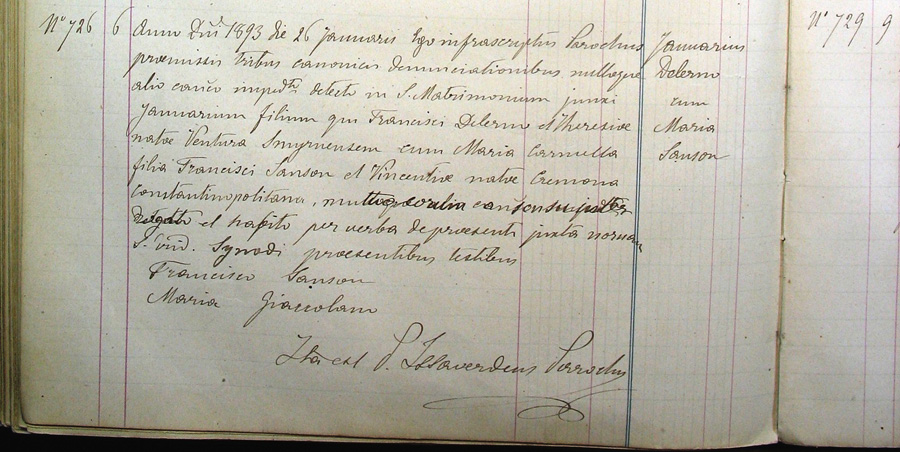 Nº 726 6 Anno Dni 1893 die 26 Januarii Ego infrascriptus Parochus
praemissis tribus canonicis denunciationibus nulloque
alio canco impedto detecto in S. Matrimonium junxi
Januarium filium qm Francisci Delermo et Theresiae
natae Ventura Smyrnensem cum Maria Carmella
filia Francisci Sanson et Vincentiae natae Cremona
Constantinopolitana,
et habito per verba de praesenti juxta normam
S. Trid. Synodi praesentibus testibus
Francisco Sanson
Maria Giaccolani
Ita est P. Issaverdens Parochus
Januarius
Delermo
cum
Maria
Sanson
Nº 729 9